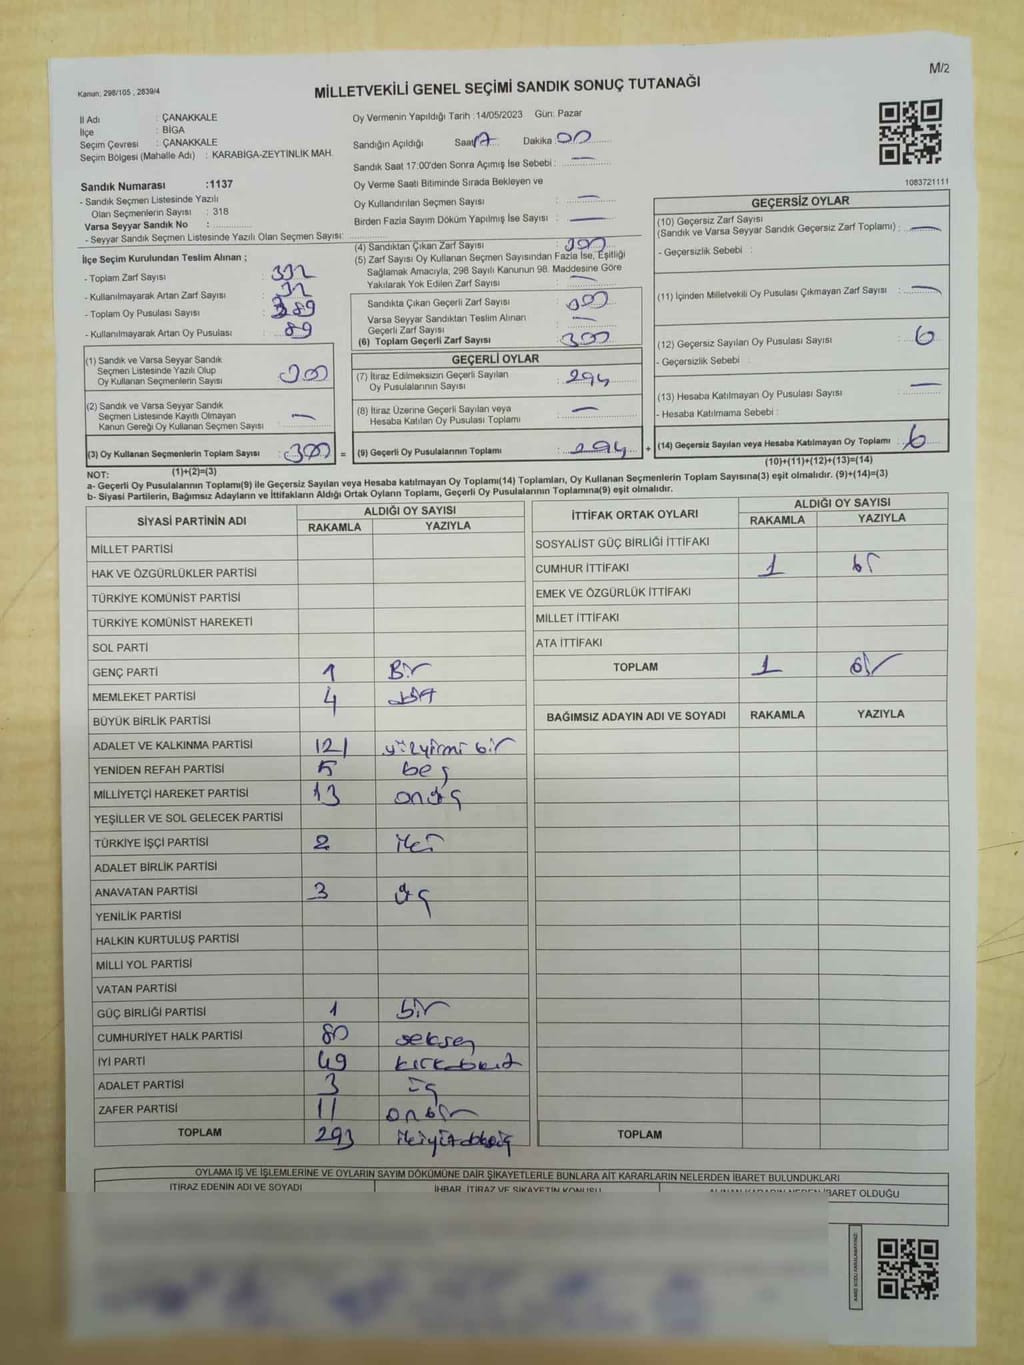 M/2
Kanun; 298/105 , 2839/4
MİLLETVEKİLİ GENEL SEÇİMİ SANDIK SONUÇ TUTANAĞI
İl Adı : ÇANAKKALE
İlçe : BİGA
Seçim Çevresi : ÇANAKKALE
Seçim Bölgesi (Mahalle Adı) : KARABİGA-ZEYTİNLİK MAH.
Sandık Numarası :1137
- Sandık Seçmen Listesinde Yazılı
Olan Seçmenlerin Sayısı : 318
Varsa Seyyar Sandık No :
- Seyyar Sandık Seçmen Listesinde Yazılı Olan Seçmen Sayısı:
Oy Vermenin Yapıldığı Tarih : 14/05/2023 Gün: Pazar
Sandığın Açıldığı Saat 17 Dakika 00
Sandık Saat 17:00'den Sonra Açımış İse Sebebi : —
Oy Verme Saati Bitiminde Sırada Bekleyen ve
Oy Kullandırılan Seçmen Sayısı : —
Birden Fazla Sayım Döküm Yapılmış İse Sayısı : —
1083721111
İlçe Seçim Kurulundan Teslim Alınan ;
- Toplam Zarf Sayısı : 332
- Kullanılmayarak Artan Zarf Sayısı : 32
- Toplam Oy Pusulası Sayısı : 389
- Kullanılmayarak Artan Oy Pusulası : 89
(1) Sandık ve Varsa Seyyar Sandık
Seçmen Listesinde Yazılı Olup
Oy Kullanan Seçmenlerin Sayısı : 300
(2) Sandık ve Varsa Seyyar Sandık
Seçmen Listesinde Kayıtlı Olmayan
Kanun Gereği Oy Kullanan Seçmen Sayısı : —
(3) Oy Kullanan Seçmenlerin Toplam Sayısı : 300 =
(4) Sandıktan Çıkan Zarf Sayısı : 300
(5) Zarf Sayısı Oy Kullanan Seçmen Sayısından Fazla İse, Eşitliği
Sağlamak Amacıyla, 298 Sayılı Kanunun 98. Maddesine Göre
Yakılarak Yok Edilen Zarf Sayısı : —
Sandıkta Çıkan Geçerli Zarf Sayısı : 300
Varsa Seyyar Sandıktan Teslim Alınan
Geçerli Zarf Sayısı : —
(6) Toplam Geçerli Zarf Sayısı : 300
GEÇERLİ OYLAR
(7) İtiraz Edilmeksizin Geçerli Sayılan
Oy Pusulalarının Sayısı : 294
(8) İtiraz Üzerine Geçerli Sayılan veya
Hesaba Katılan Oy Pusulası Toplamı : —
(9) Geçerli Oy Pusulalarının Toplamı : 294 +
GEÇERSİZ OYLAR
(10) Geçersiz Zarf Sayısı
(Sandık ve Varsa Seyyar Sandık Geçersiz Zarf Toplamı) : —
- Geçersizlik Sebebi :
(11) İçinden Milletvekili Oy Pusulası Çıkmayan Zarf Sayısı : —
(12) Geçersiz Sayılan Oy Pusulası Sayısı : 6
- Geçersizlik Sebebi :
(13) Hesaba Katılmayan Oy Pusulası Sayısı : —
- Hesaba Katılmama Sebebi :
(14) Geçersiz Sayılan veya Hesaba Katılmayan Oy Toplamı : 6
NOT: (1)+(2)=(3) (10)+(11)+(12)+(13)=(14)
a- Geçerli Oy Pusulalarının Toplamı(9) ile Geçersiz Sayılan veya Hesaba katılmayan Oy Toplamı(14) Toplamları, Oy Kullanan Seçmenlerin Toplam Sayısına(3) eşit olmalıdır. (9)+(14)=(3)
b- Siyasi Partilerin, Bağımsız Adayların ve İttifakların Aldığı Ortak Oyların Toplamı, Geçerli Oy Pusulalarının Toplamına(9) eşit olmalıdır.
SİYASİ PARTİNİN ADI ALDIĞI OY SAYISI
RAKAMLA YAZIYLA
MİLLET PARTİSİ
HAK VE ÖZGÜRLÜKLER PARTİSİ
TÜRKİYE KOMÜNİST PARTİSİ
TÜRKİYE KOMÜNİST HAREKETİ
SOL PARTİ
GENÇ PARTİ 1 Bir
MEMLEKET PARTİSİ 4
BÜYÜK BİRLİK PARTİSİ
ADALET VE KALKINMA PARTİSİ 121 yüzyirmi bir
YENİDEN REFAH PARTİSİ 5 beş
MİLLİYETÇİ HAREKET PARTİSİ 13 onüç
YEŞİLLER VE SOL GELECEK PARTİSİ
TÜRKİYE İŞÇİ PARTİSİ 2 iki
ADALET BİRLİK PARTİSİ
ANAVATAN PARTİSİ 3 üç
YENİLİK PARTİSİ
HALKIN KURTULUŞ PARTİSİ
MİLLİ YOL PARTİSİ
VATAN PARTİSİ
GÜÇ BİRLİĞİ PARTİSİ 1 bir
CUMHURİYET HALK PARTİSİ 80 seksen
İYİ PARTİ 49
ADALET PARTİSİ 3 üç
ZAFER PARTİSİ 11 onbir
TOPLAM 293
İTTİFAK ORTAK OYLARI ALDIĞI OY SAYISI
RAKAMLA YAZIYLA
SOSYALİST GÜÇ BİRLİĞİ İTTİFAKI
CUMHUR İTTİFAKI 1 bir
EMEK VE ÖZGÜRLÜK İTTİFAKI
MİLLET İTTİFAKI
ATA İTTİFAKI
TOPLAM 1 bir
BAĞIMSIZ ADAYIN ADI VE SOYADI RAKAMLA YAZIYLA
TOPLAM
OYLAMA İŞ VE İŞLEMLERİNE VE OYLARIN SAYIM DÖKÜMÜNE DAİR ŞİKAYETLERLE BUNLARA AİT KARARLARIN NELERDEN İBARET BULUNDUKLARI
İTİRAZ EDENİN ADI VE SOYADI İHBAR, İTİRAZ VE ŞİKAYETİN KONUSU ALINAN KARARIN NEDEN İBARET OLDUĞU